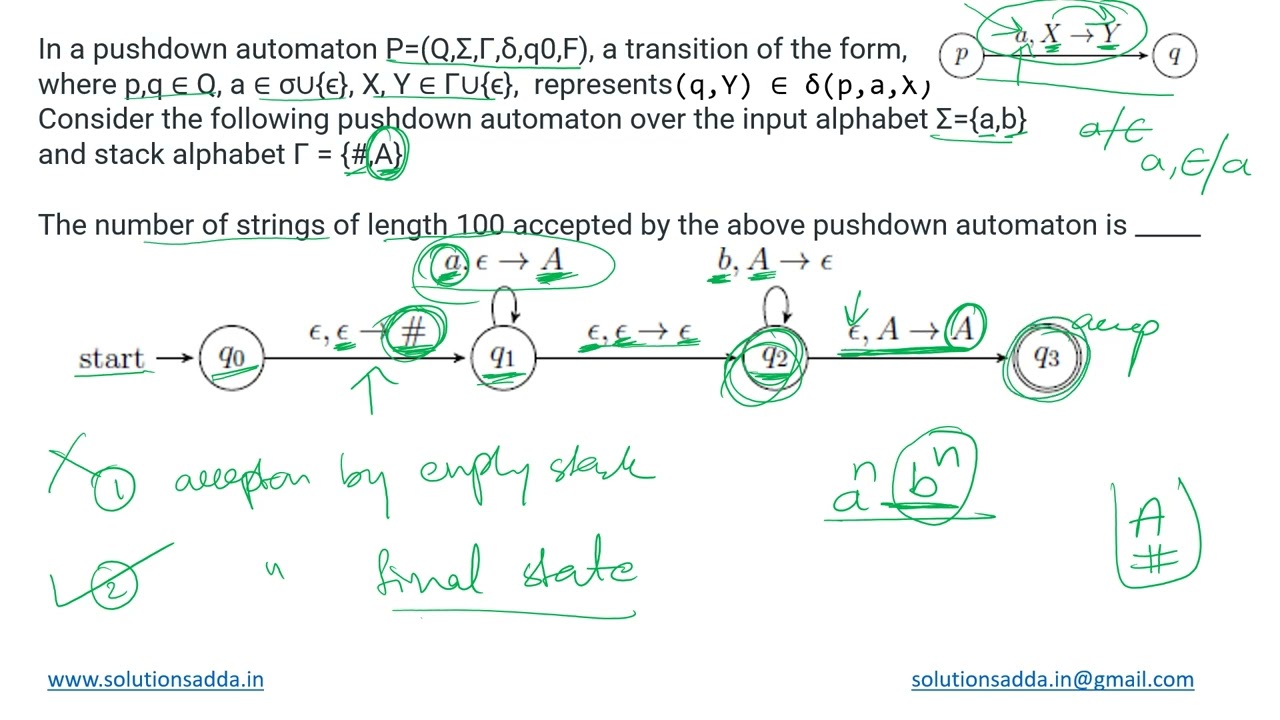 In a pushdown automaton P=(Q,Σ,Γ,δ,q0,F), a transition of the form,
p a, X → Y q
where p,q ∈ Q, a ∈ σ∪{ϵ}, X, Y ∈ Γ∪{ϵ}, represents (q,Y) ∈ δ(p,a,X)
Consider the following pushdown automaton over the input alphabet Σ={a,b}
and stack alphabet Γ = {#,A}
a/ϵ
a, ϵ/a
The number of strings of length 100 accepted by the above pushdown automaton is _____
a, ϵ → A b, A → ϵ
ϵ, ϵ → # ϵ, ϵ → ϵ ϵ, A → A
start q0 q1 q2 q3 accep
X 1 accepton by empty stack
aⁿ bⁿ
A
#
2 " final state
www.solutionsadda.in solutionsadda.in@gmail.com